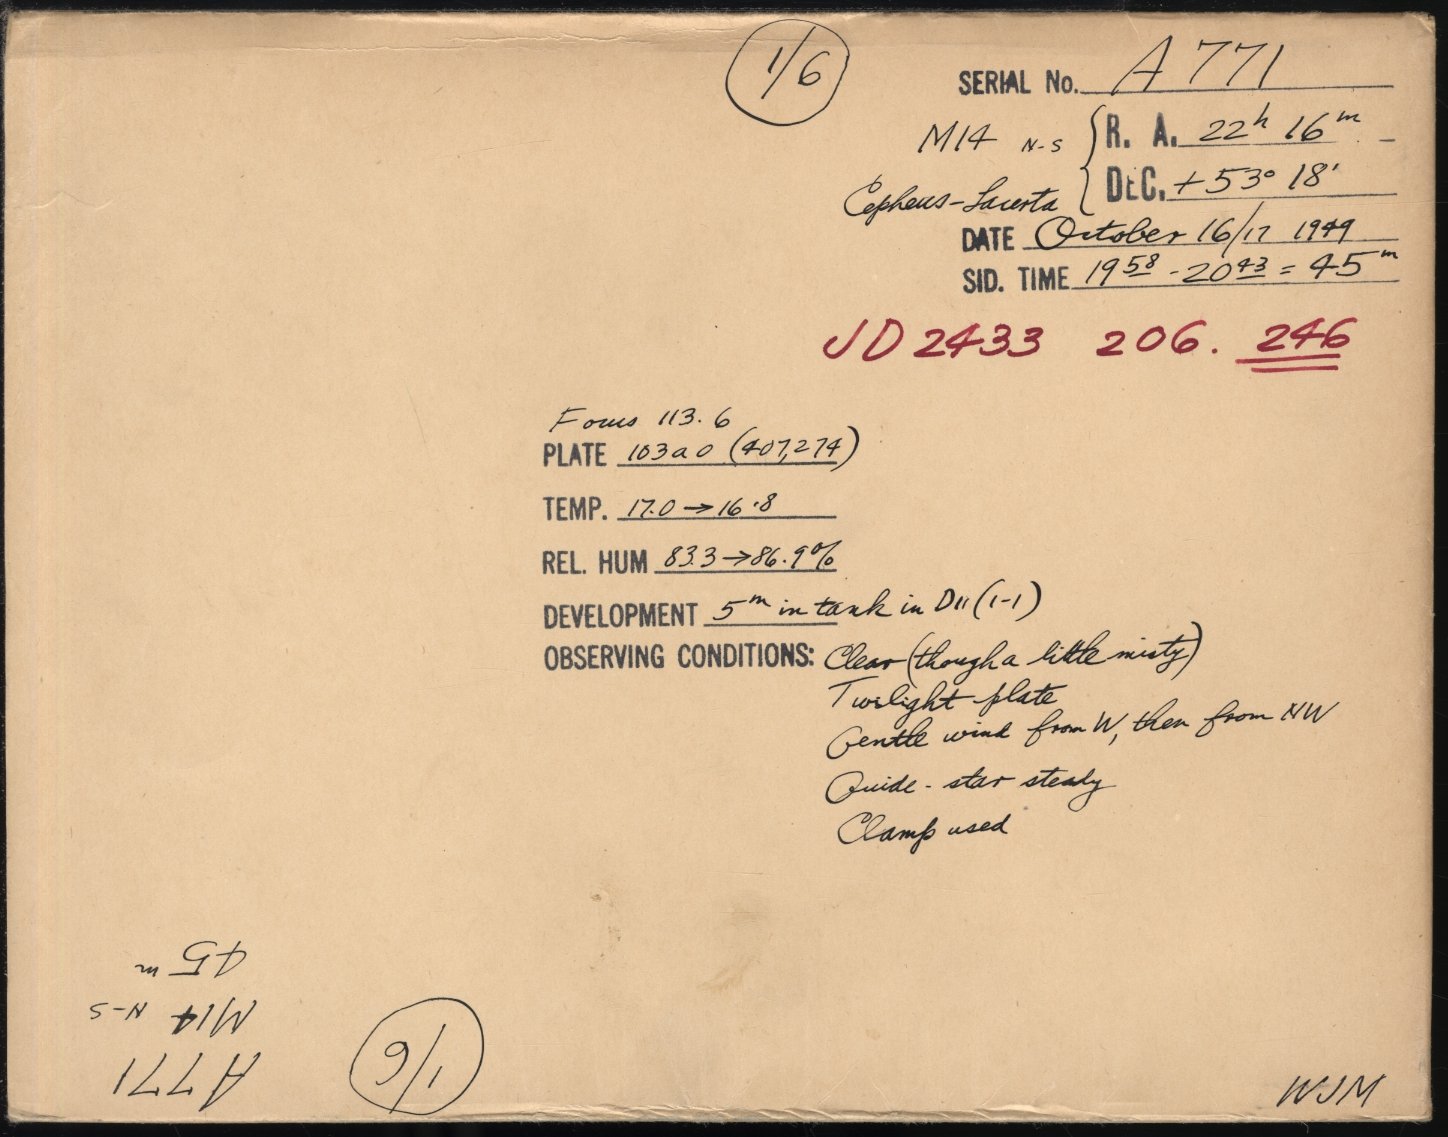 1/6
SERIAL No. A 771
M14 N-S R. A. 22h 16m
Cepheus-Lacerta DEC. +53° 18'
DATE October 16/17 1949
SID. TIME 19 58 - 20 43 = 45m
JD 2433 206. 246
Focus 113.6
PLATE 103a O (407,274)
TEMP. 17.0 → 16.8
REL. HUM 83.3 → 86.9%
DEVELOPMENT 5m in tank in D11 (1-1)
OBSERVING CONDITIONS: Clear (though a little misty)
Twilight plate
Gentle wind from W, then from NW
Guide-star steady
Clamp used
A 771
M14 N-S
45m
1/6
WJM